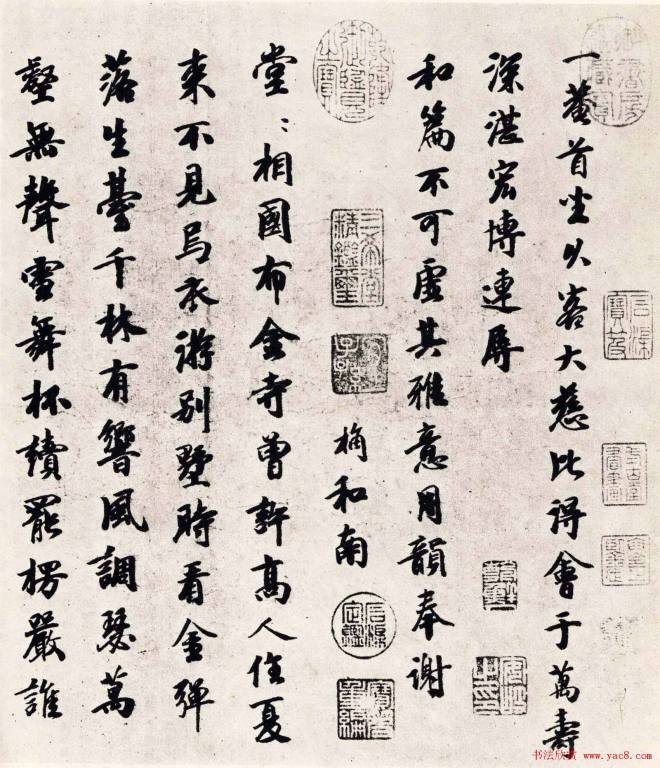 一庵首坐以省大慈比得會于萬壽
深湛宏博連辱
和篇不可虛其雅意用韻奉謝
楠和南
堂〻相國布金寺曾許高人住夏
來不見烏衣游別墅時看金彈
落生臺千林有響風調瑟萬
壑無聲雪舞杯續罷楞嚴誰
书法欣赏 www.yac8.com